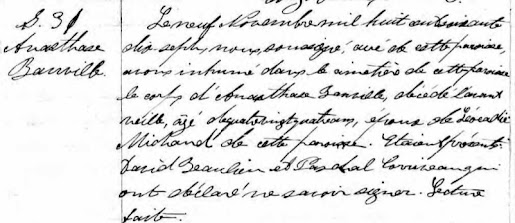 S. 31
Anasthase
Banville.
Le neuf Novembre mil huit cent soixante
dix sept, nous soussigné, curé de cette paroisse,
avons inhumé dans le cimetière de cette paroisse
le corps d'Anasthase Banville, décédé l'avant
veille, âgé de quatrevingt quatre ans, époux de Léocadie
Michaud de cette paroisse. Etaient présents
David Beaulieu et Paschal qui
ont déclaré ne savoir signer. Lecture
faite.